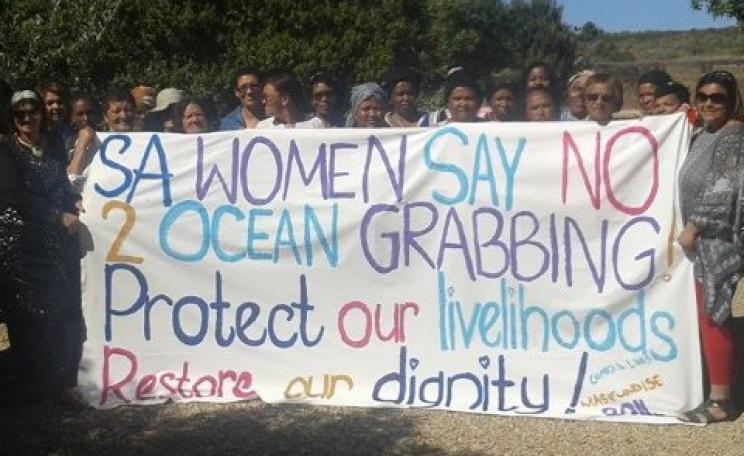 SA WOMEN SAY NO
2 OCEAN GRABBING!
Protect our livelihoods
Restore our dignity!